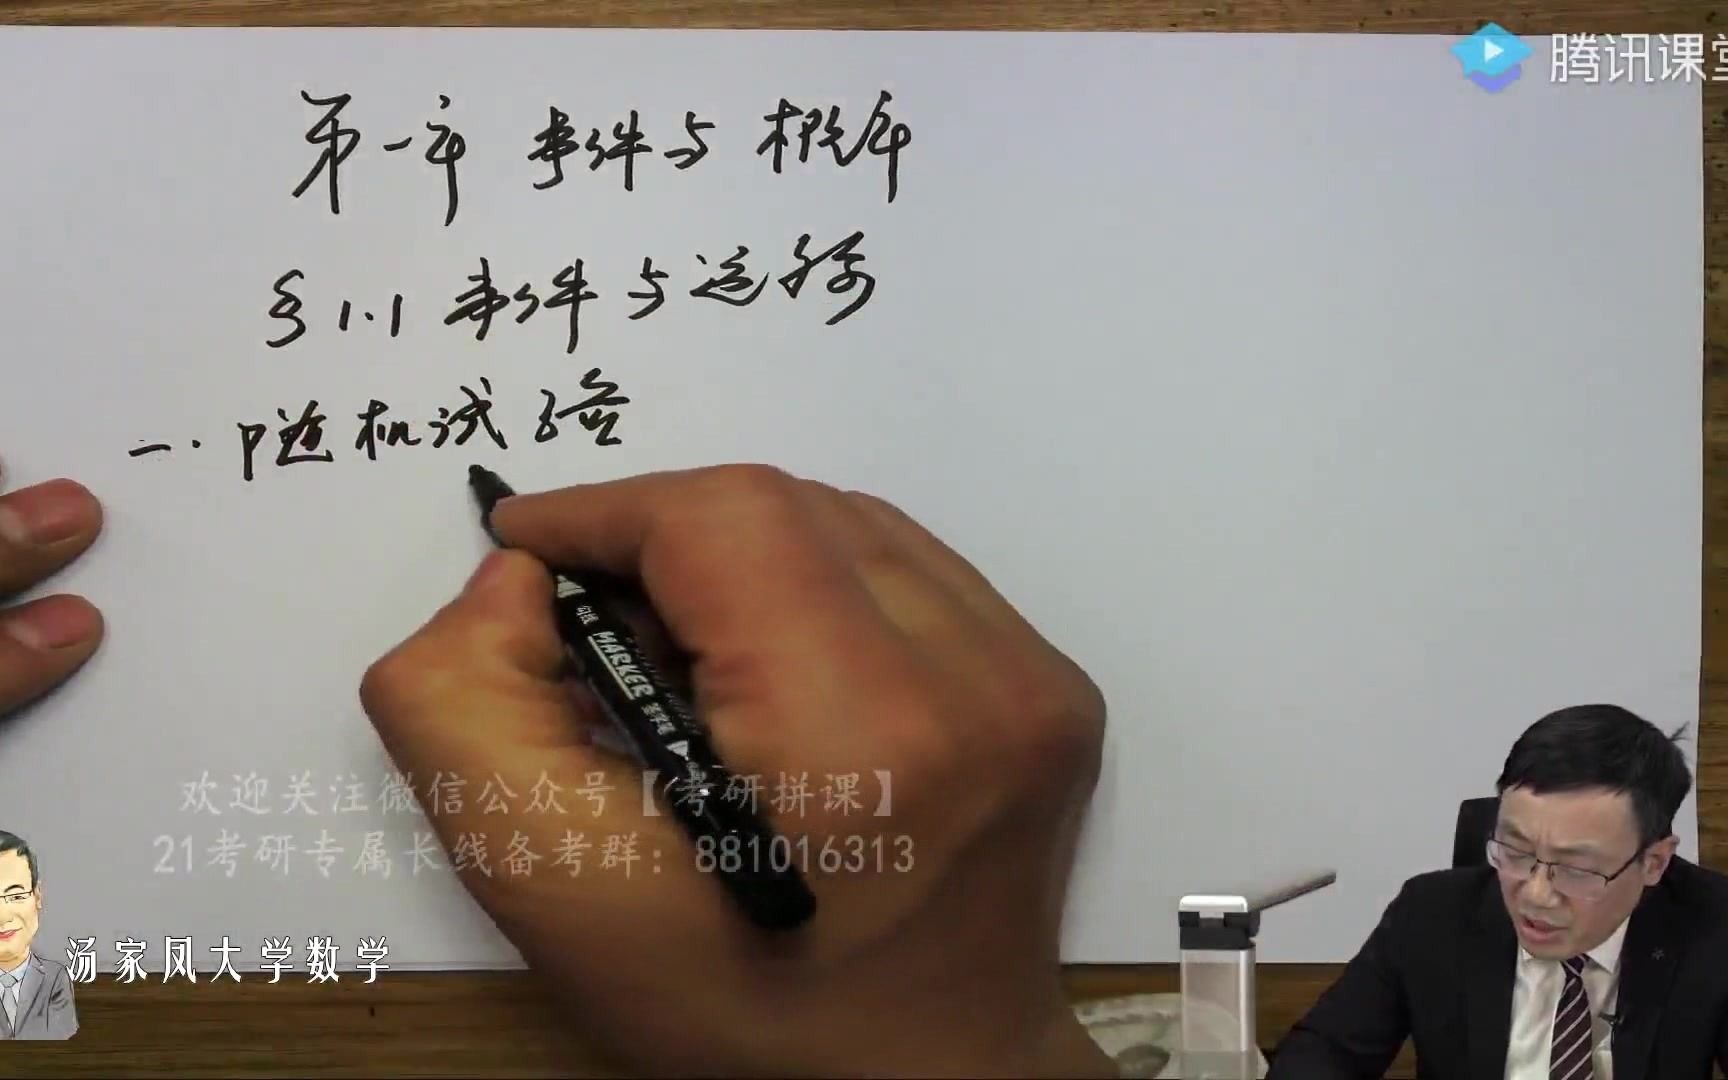 腾讯课堂
第一章 事件与概率
§1.1 事件与运算
一. 随机试验
勾线 MARKER
欢迎关注微信公众号【考研拼课】
21考研专属长线备考群：881016313
汤家凤大学数学